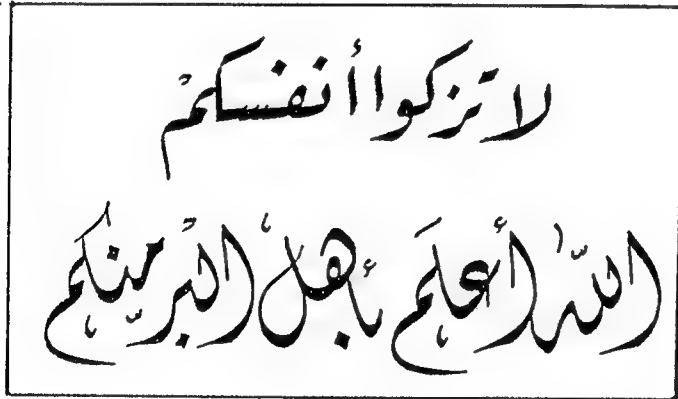 لا تزكوا أنفسكم
الله أعلم بأهل البر منكم